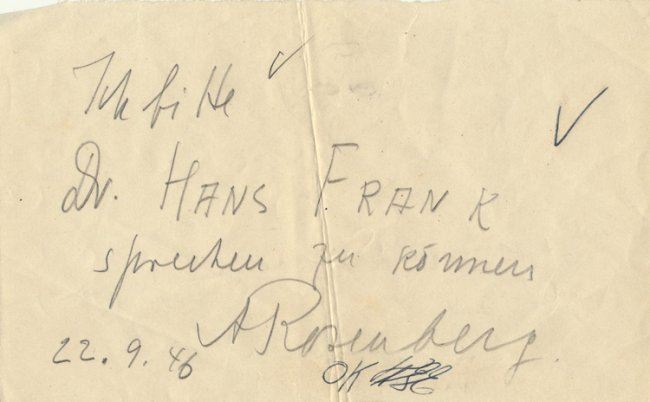 Ich bitte
Dr. HANS FRANK
sprechen zu können
ARosenberg.
22.9.46
OK